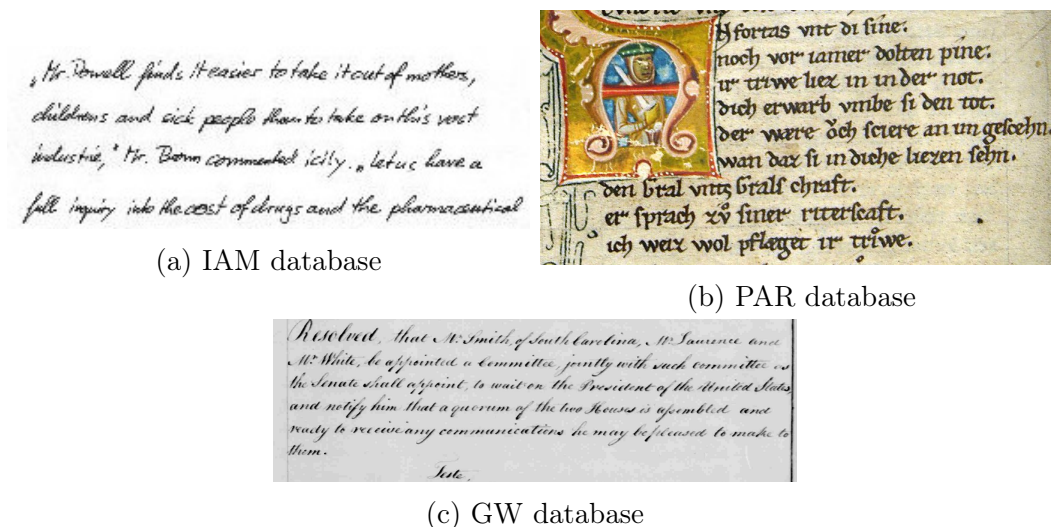 „Mr. Powell finds it easier to take it out of mothers,
childrens and sick people than to take on this vast
industrie," Mr. Bown commented icily. „Let us have a
full inquiry into the cost of drugs and the pharmaceutical
(a) IAM database
fortas vnt di sine.
noch vor iamer dolten pine.
ir triwe liez in in der not.
dich erwarb vmbe si den tot.
der wære oͮch sciere an im gescehn.
wan daz si in diche liezen sehn.
den gral vnns grals chraft.
er sprach zvͦ siner riterscaft.
ich weiz wol pflæget ir triwe.
(b) PAR database
Resolved, that Mr. Smith, of South Carolina, Mr. Laurence and
Mr. White, be appointed a Committee, jointly with such committee as
the Senate shall appoint, to wait on the President of the United States,
and notify him that a quorum of the two Houses is assembled and
ready to receive any communications he may be pleased to make to
them.
Teste,
(c) GW database